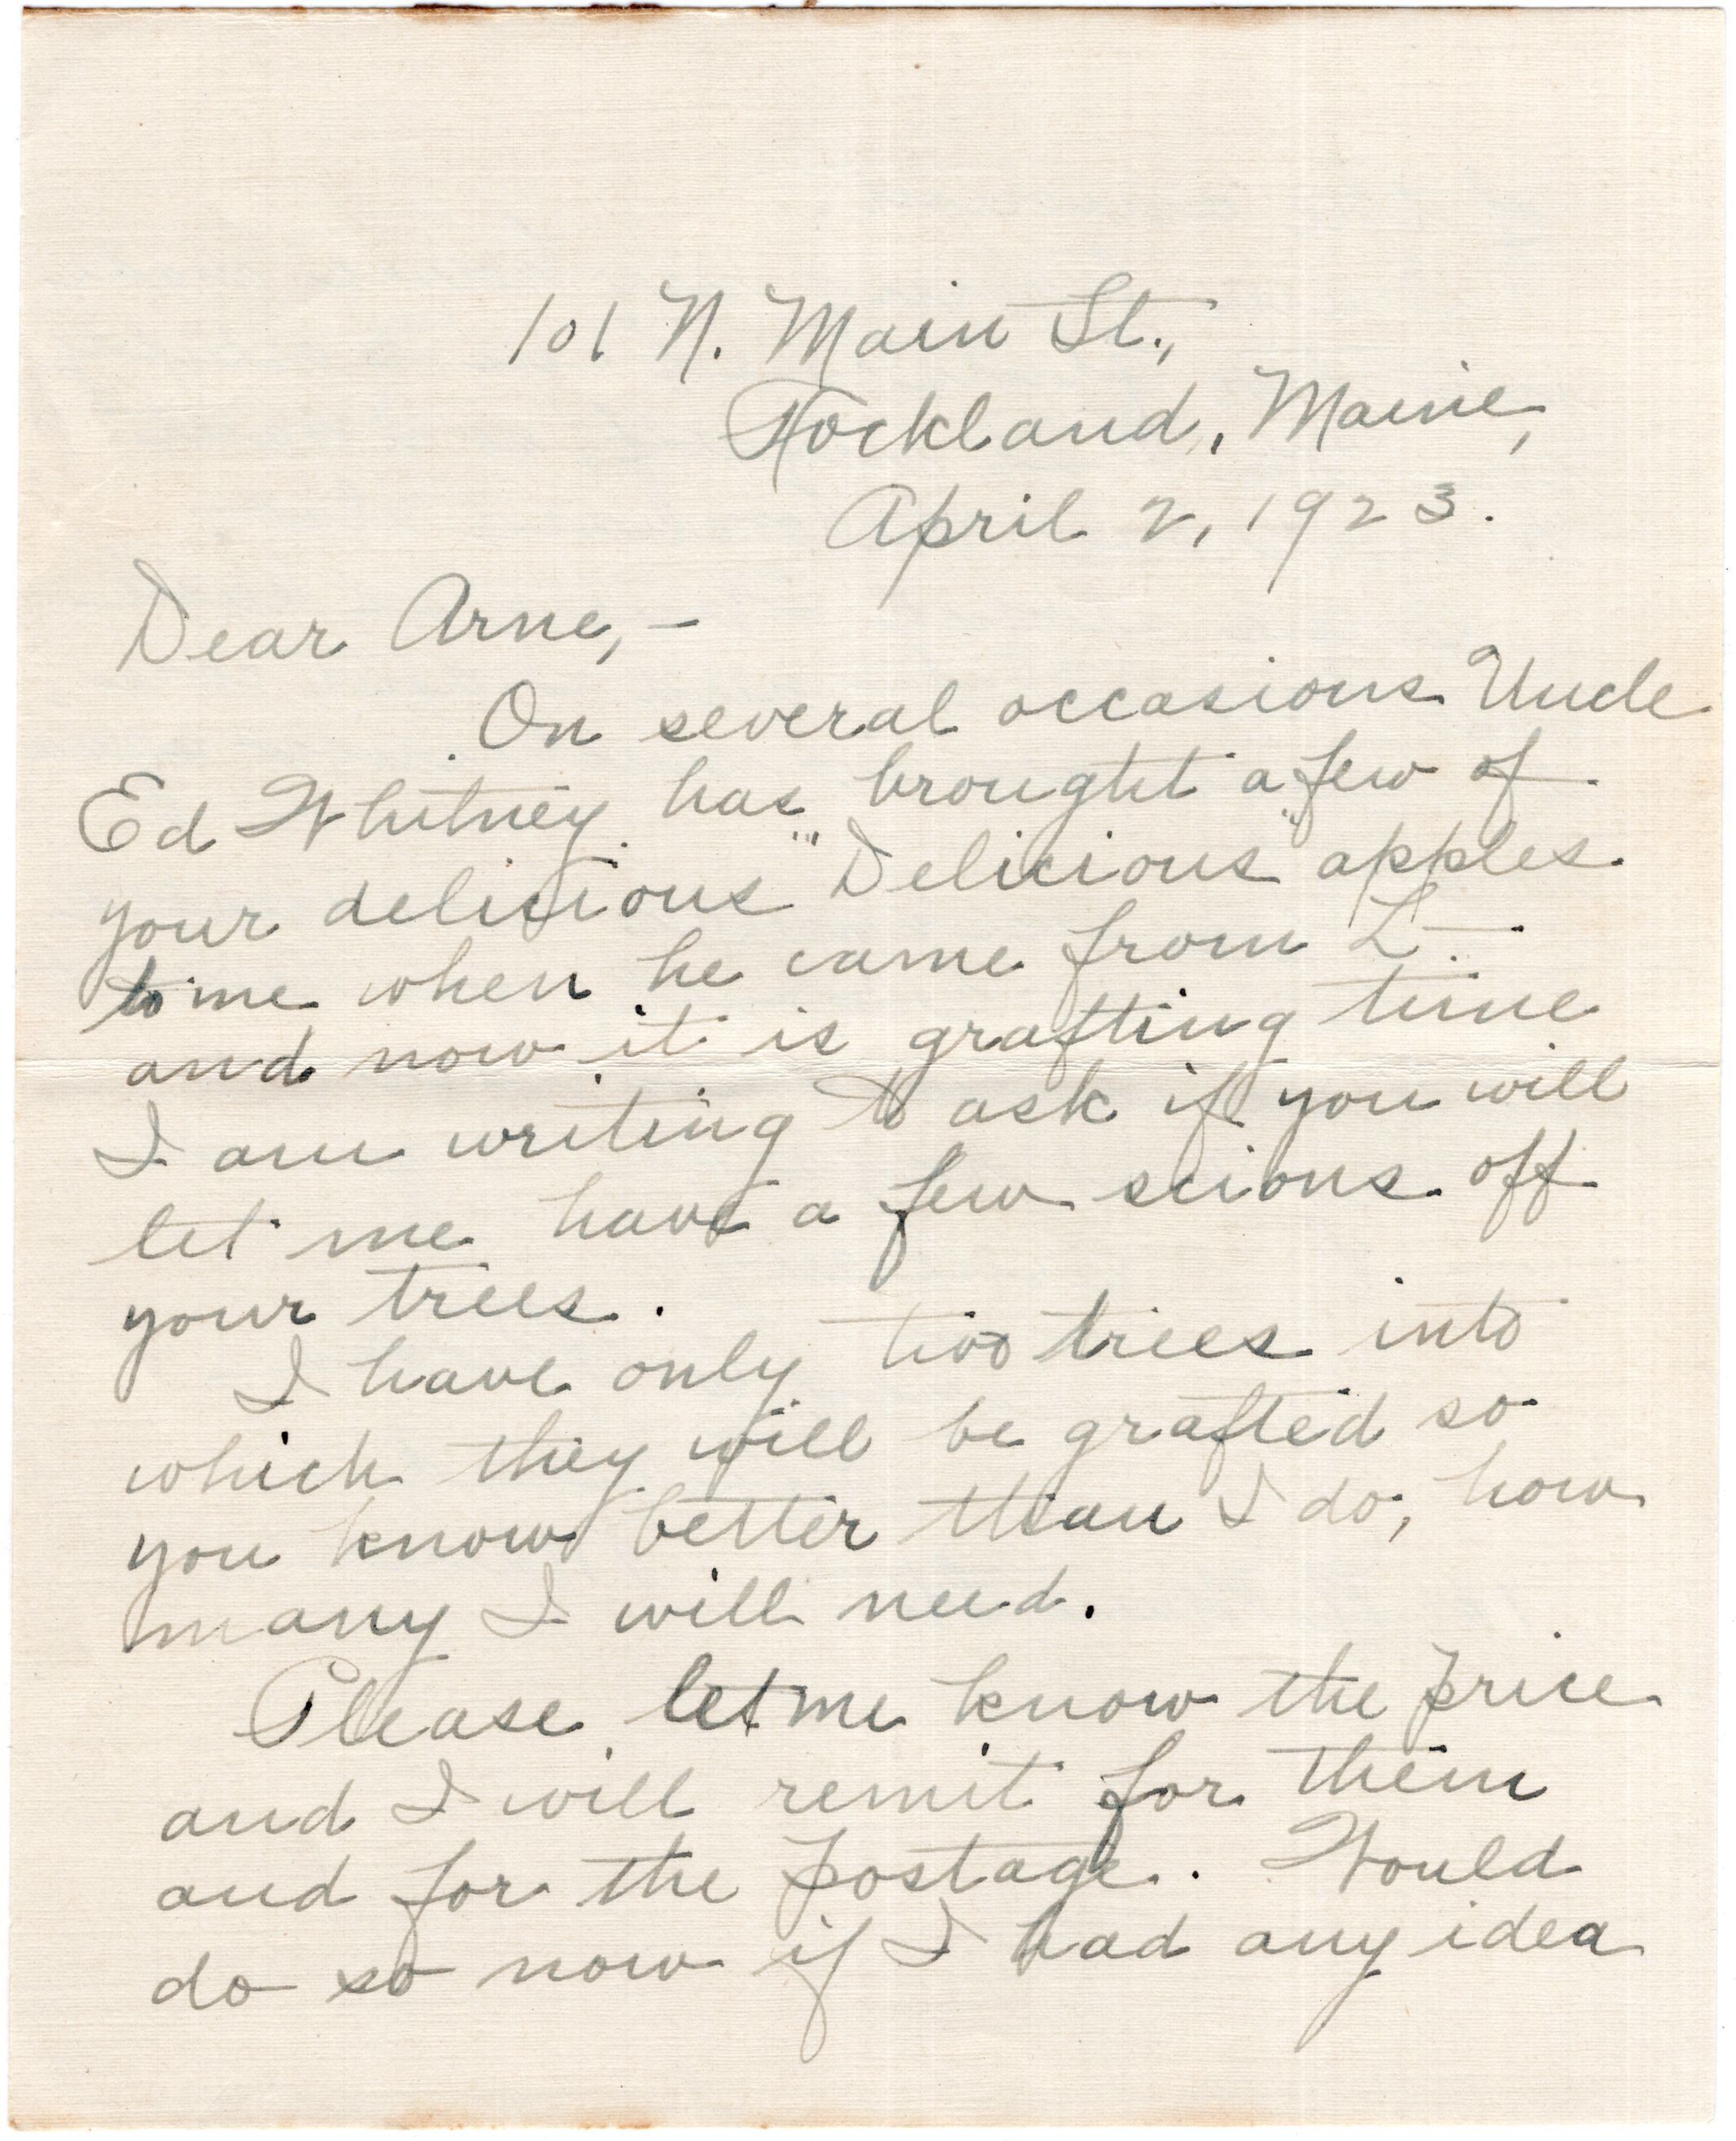 101 N. Main St.,
Rockland, Maine,
April 2, 1923.
Dear Arne,-
On several occasions Uncle
Ed Whitney has brought a few of
your delicious "Delicious" apples
to me when he came from L—
and now it is grafting time
I am writing to ask if you will
let me have a few scions off
your trees.
I have only two trees into
which they will be grafted so
you know better than I do, how
many I will need.
Please let me know the price
and I will remit for them
and for the postage. Would
do so now if I had any idea